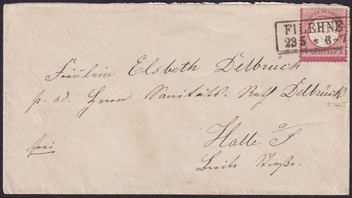 FILEHNE
23 5 * 6-7
Fräulein Elsbeth Delbrück
p. ad. Herrn Sanitäts-Rath Delbrück
Halle a/S
frei
Breite Straße.